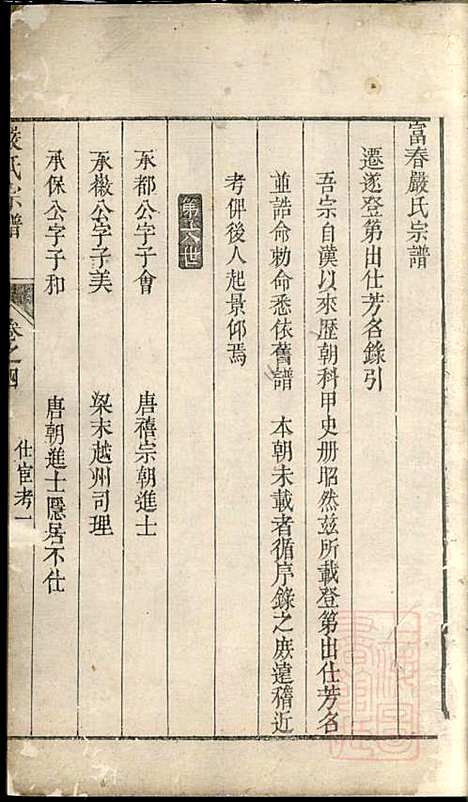 富春嚴氏宗譜
遷遂登第出仕芳名錄引
吾宗自漢以來歷朝科甲史册昭然茲所載登第出仕芳名
並誥命勅命悉依舊譜　本朝未載者循序錄之庶遠稽近
考俾後人起景仰焉
第十八世
承都公字子會　唐禧宗朝進士
承徽公字子美　梁末越州司理
承保公字子和　唐朝進士隱居不仕
嚴氏宗譜　卷之四　仕宦考一